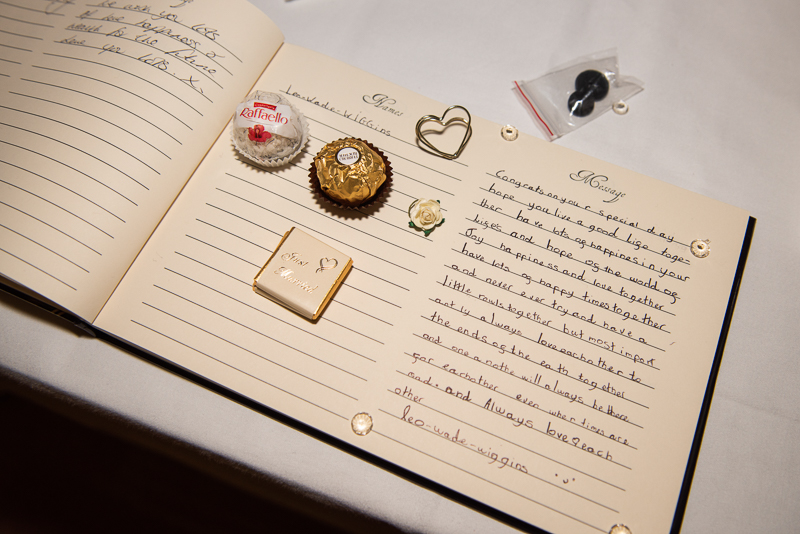 be with you lots
of love happiness
would be the future
love you lots. x.
Names
Leo-Wade-Wiggins
Raffaello
Just
Married
Message
Congrats on your special day
hope you live a good life toge-
ther have lots of happines in your
lifes and hope of the world of
Joy happiness and love together
have lots of happy times together
and never ever try and have a
little rowls together but most import
antly always love eachother to
the ends of the earth together
and one anothe will always be there
for eachother even when times are
mad. and Always love each
other
leo-wade-wiggins